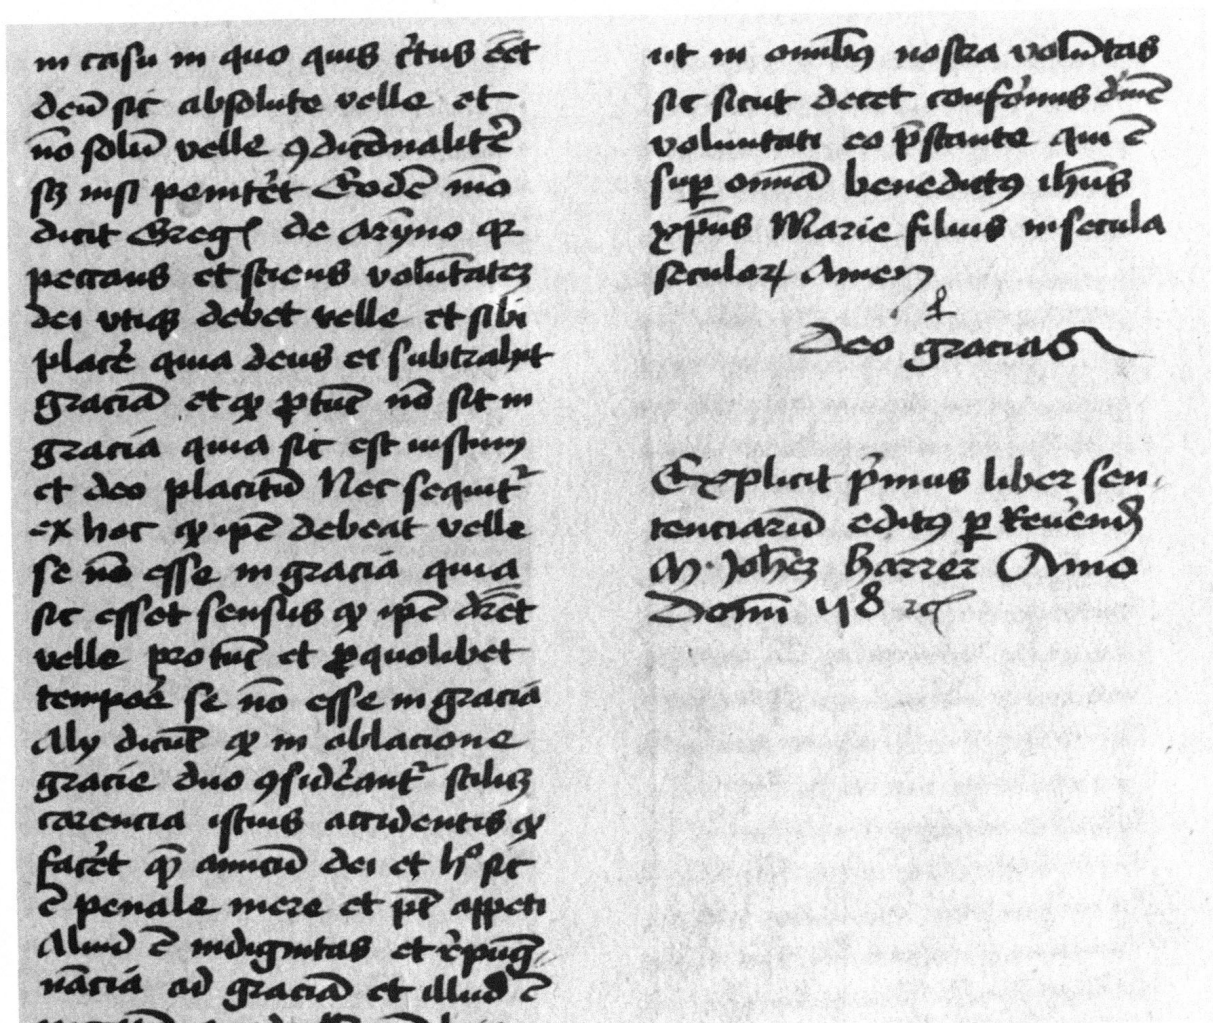 in casu in quo quis c̄tus eēt
deū sic absolute velle et
nō solū velle ꝯdicōnalitē
sꝫ nisi penitēt Eodē mō
dicit Greg de Arȳno qꝛ
peccans et sciens volūtateꝫ
dei vtiqꝫ debet velle et sibi
placē quia deus ei subtrahit
graciā et ꝙ ꝓ tūc nō sit in
gracia quia sic est iustum
et deo placitū Nec sequit᷑
ex hoc ꝙ ip̄e debeat velle
se nō esse in gracia quia
sic esset sensus ꝙ ip̄e dēt
velle pro tūc et ꝓ quolibet
tempoē se nō esse in gracia
Alij dicūt ꝙ in ablacione
gracie duo ꝯsidēant᷑ scilicꝫ
carencia istius accidentis ꝙ
facēt ip̄m amicū dei et hᵒ sic
ē penale mere et pt̄ appeti
Aliud ē indignitas et rēpug
nācia ad graciā et illud ē
ut in omībꝰ nostra volūtas
sic sicut decet confōmis diuīe
voluntati eo p̄stante qui ē
suꝑ om̄ia benedictꝰ ih̄us
xp̄us Marie filius in secula
seculoꝝ Amen
Deo gracias
Explicit p̄mus liber sen
tenciarū editꝰ ꝑ Reuēnd
M. Joh̄eꝫ Harrer Anno
Dom̄i